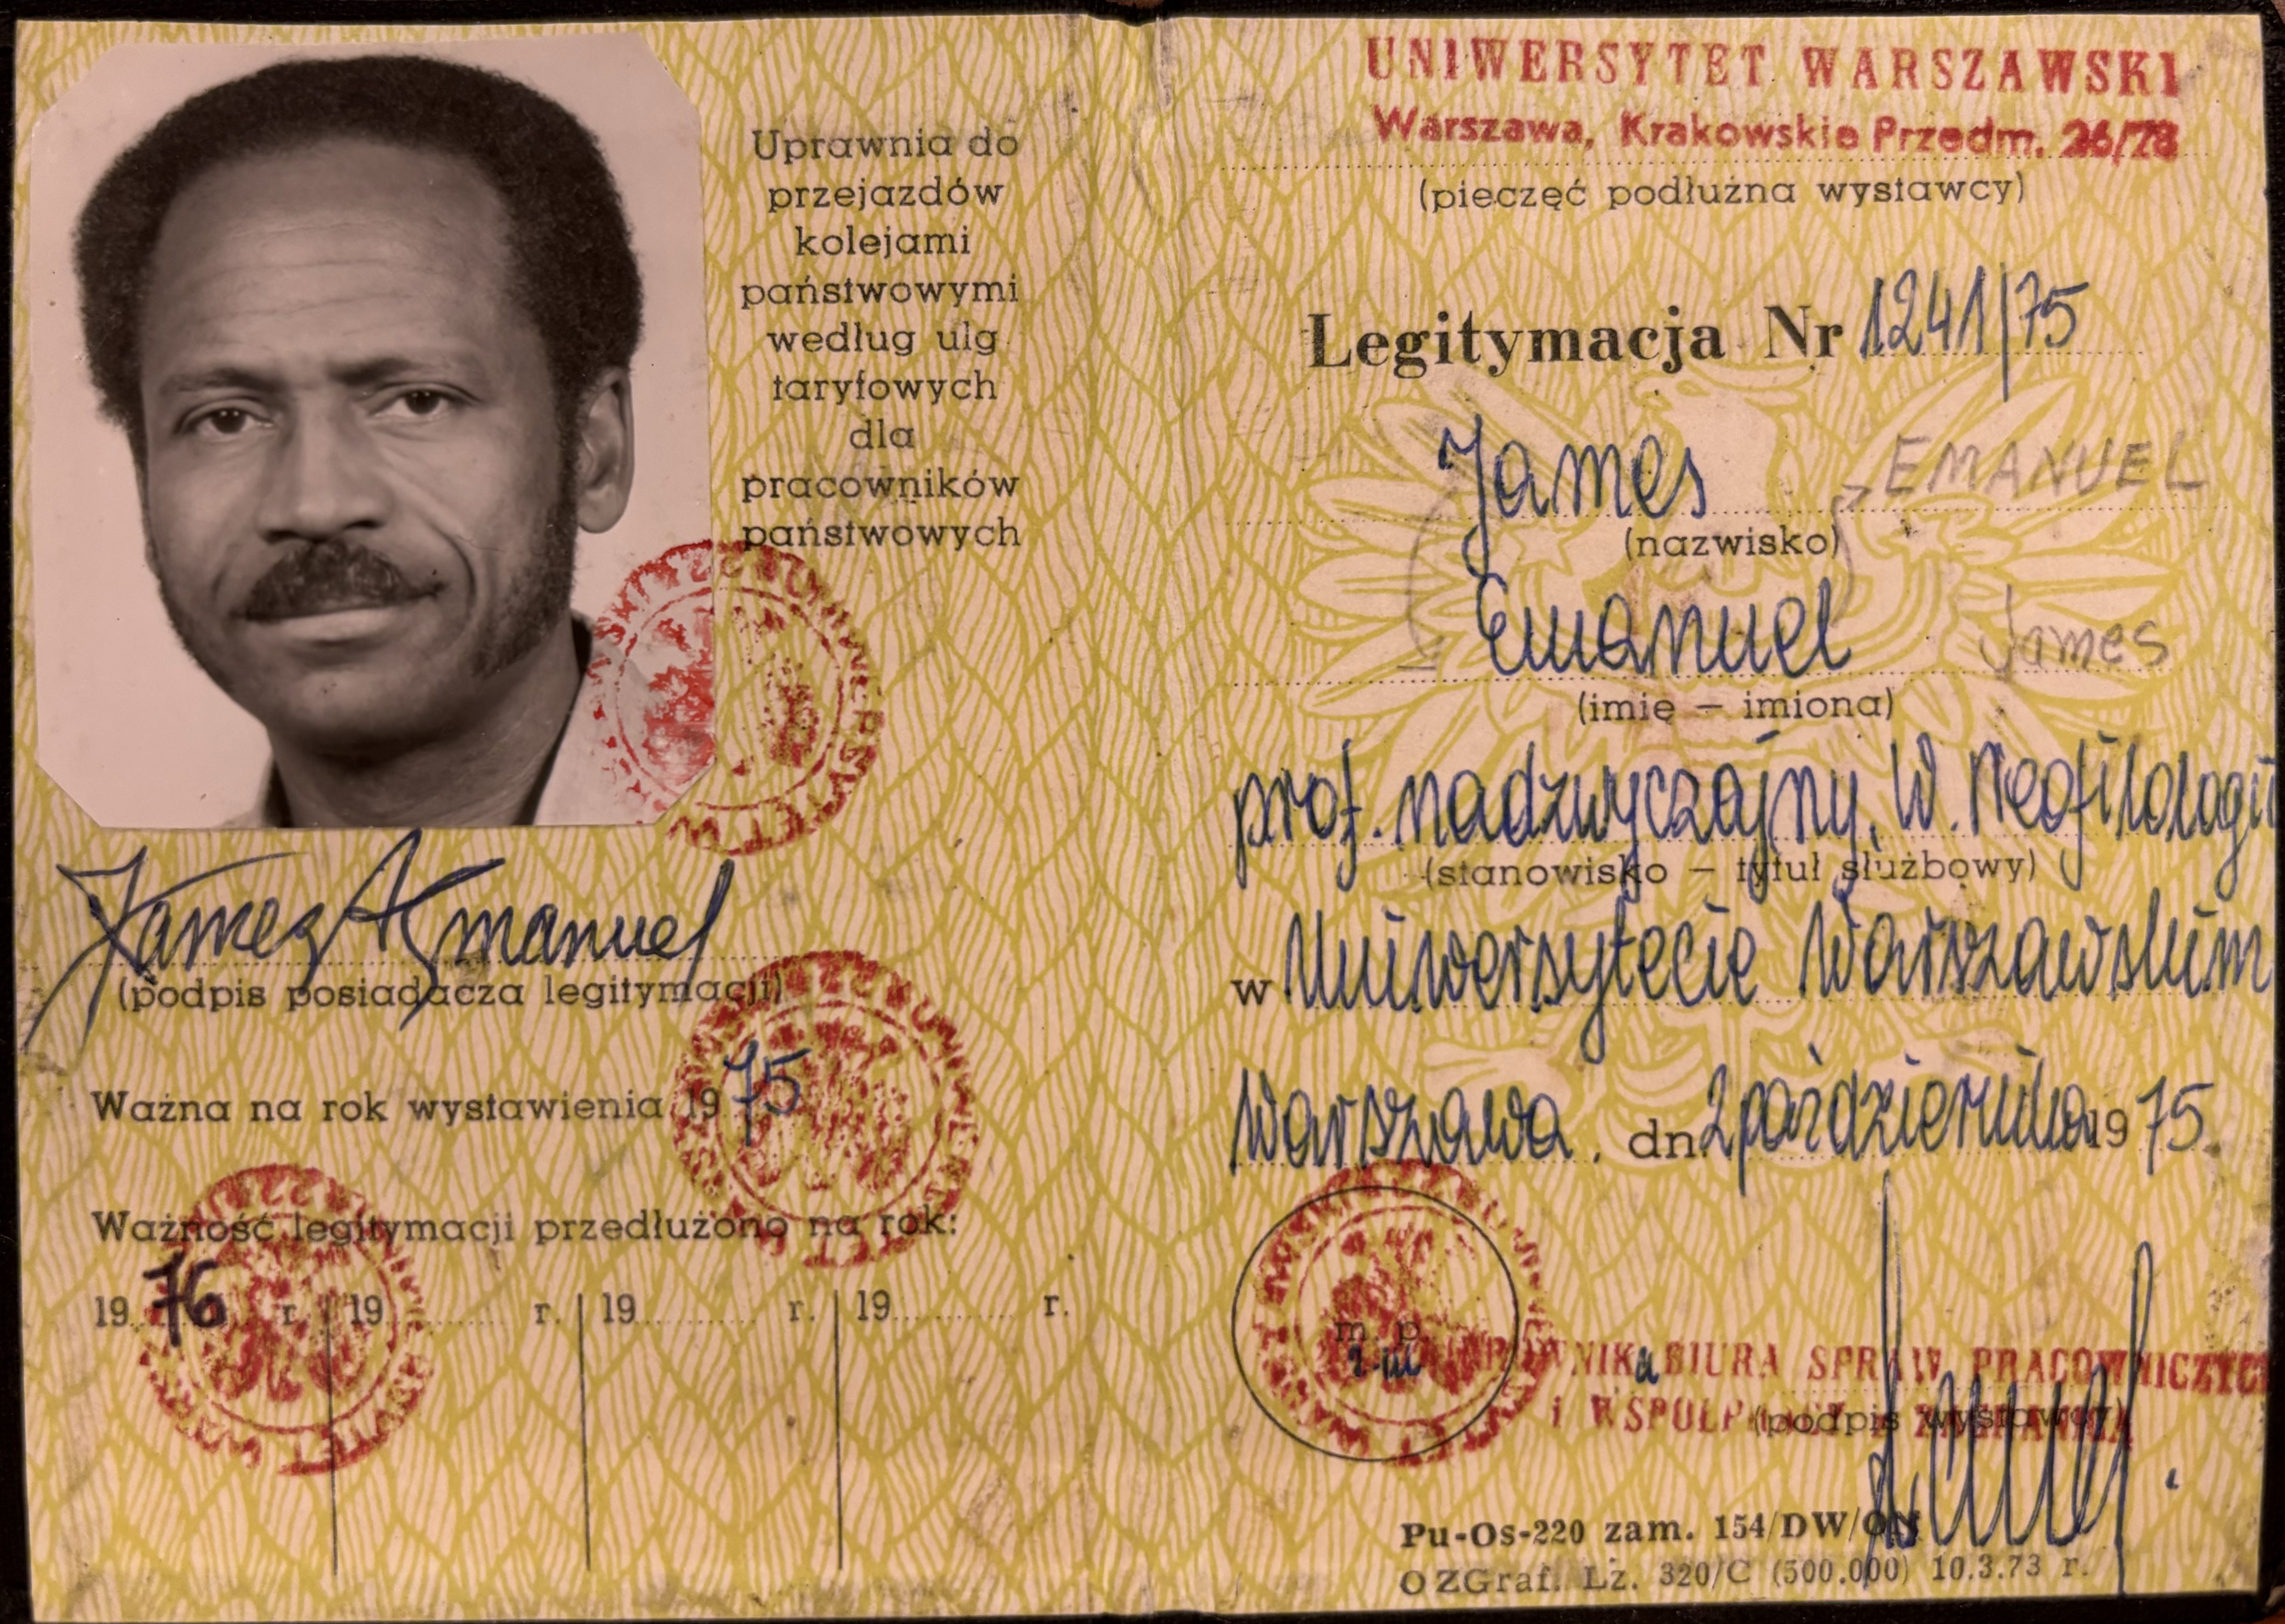 Uprawnia do
przejazdów
kolejami
państwowymi
według ulg
taryfowych
dla
pracowników
państwowych
James A. Emanuel
(podpis posiadacza legitymacji)
Ważna na rok wystawienia 1975
Ważność legitymacji przedłużono na rok:
1976 r. 19 r. 19 r. 19 r.
UNIWERSYTET WARSZAWSKI
Warszawa, Krakowskie Przedm. 26/28
(pieczęć podłużna wystawcy)
Legitymacja Nr 1241/75
James EMANUEL
(nazwisko)
Emanuel James
(imię — imiona)
prof. nadzwyczajny, W. Neofilologii
(stanowisko — tytuł służbowy)
w Uniwersytecie Warszawskim
Warszawa, dn 2 października 1975
m. p.
BIURA SPRAW PRACOWNICZYCH
i WSPÓŁPRACY Z ZAGRANICĄ
(podpis wystawcy)
Pu-Os-220 zam. 154/DW/ON
OZGraf. Lż. 320/C (500.000) 10.3.73 r.